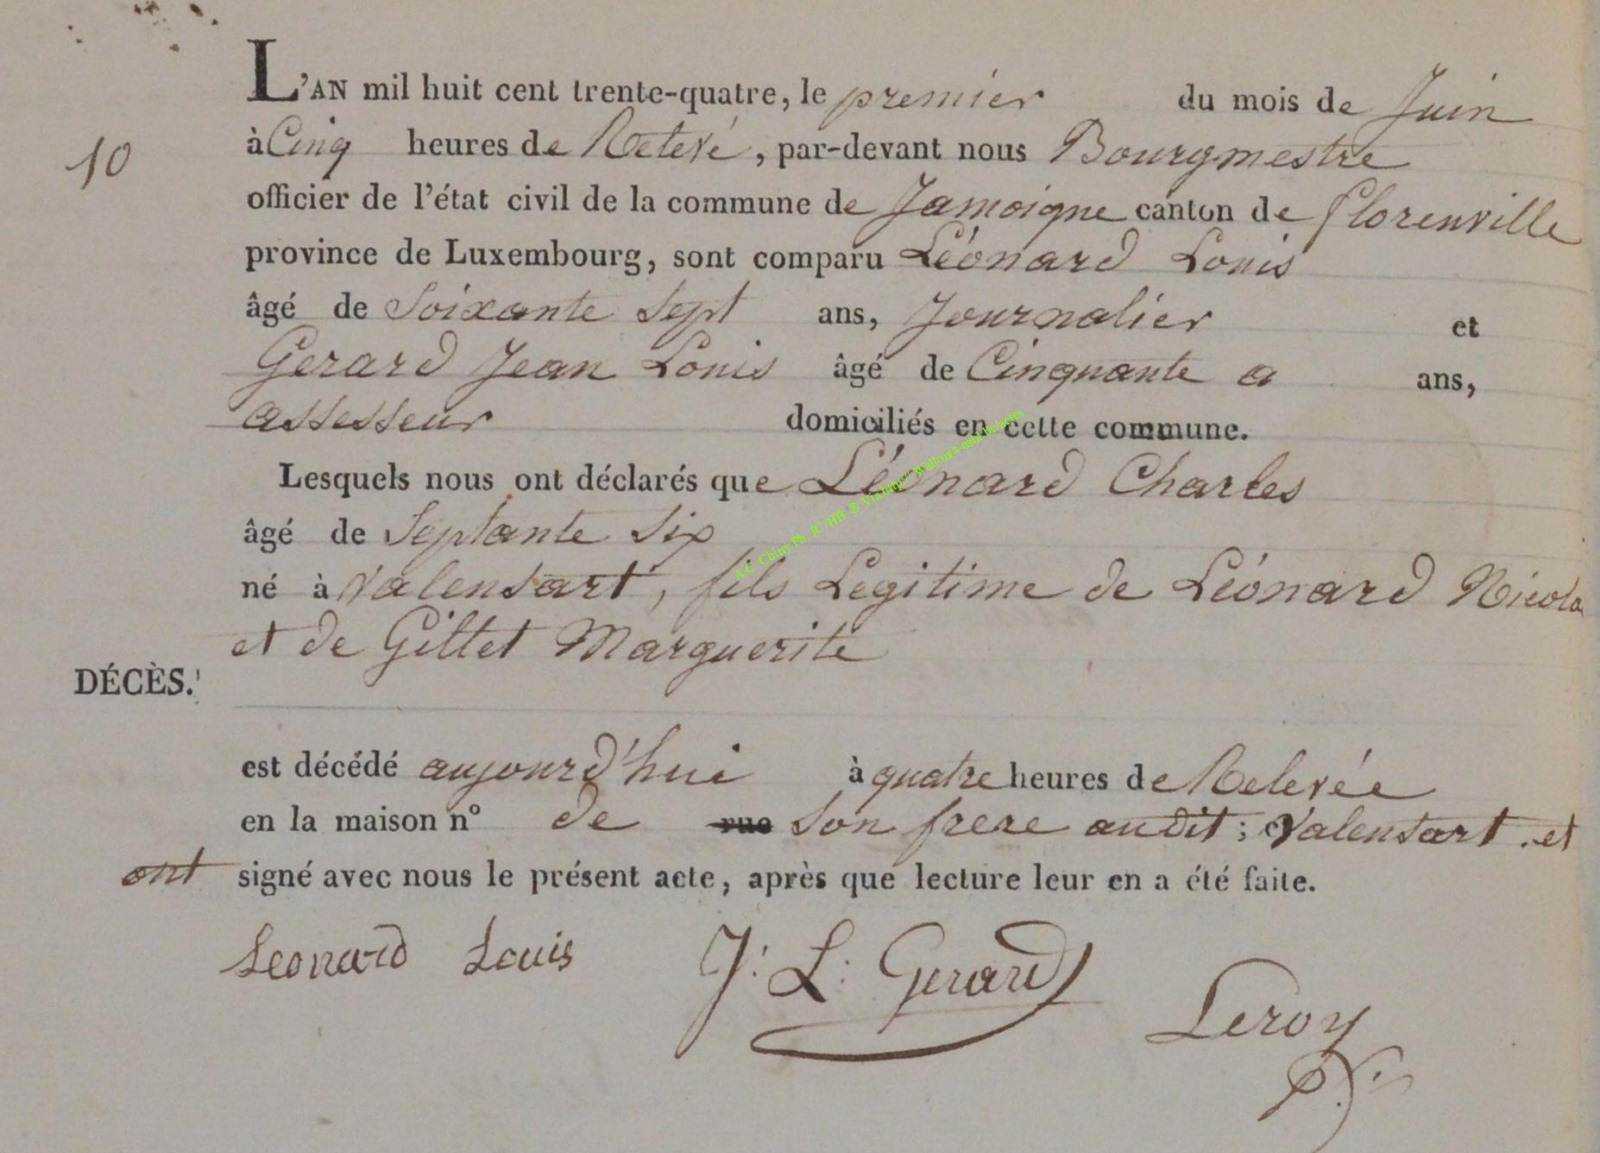 L'AN mil huit cent trente-quatre, le premier du mois de Juin
10
à Cinq heures de Relevé, par-devant nous Bourgmestre
officier de l'état civil de la commune de Jamoigne canton de florenville
province de Luxembourg, sont comparu Léonard Louis
âgé de Soixante Sept ans, Journalier et
Gerard Jean Louis âgé de Cinquante a ans,
assesseur domiciliés en cette commune.
Lesquels nous ont déclarés que Léonard Charles
âgé de Septante Six
né à Valensart, fils Legitime de Léonard Nicola
et de Gillet Marguerite
DÉCÈS.
est décédé aujourd'hui à quatre heures de Relevée
en la maison n° de rue Son frere audit; Valensart. et
ont signé avec nous le présent acte, après que lecture leur en a été faite.
Leonard Louis J: L: Gerard
Leroy